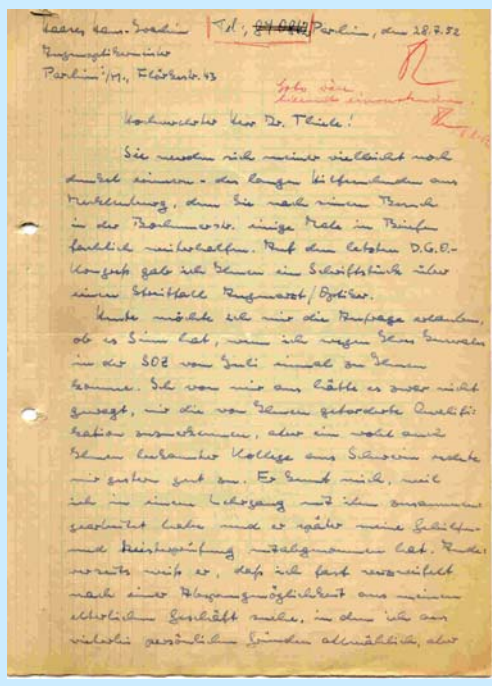 Haases Hans-Joachim Tel.: Parchim, den 28.7.52
Augenoptikermeister
Parchim i/M., Flörkestr. 43
Hochverehrter Herr Dr. Thiele!
Sie werden sich meiner vielleicht noch
dunkel erinnern - des langen aus
Mecklenburg, dem Sie nach einem Besuch
in der Bochumerstr. einige Male in Briefen
fachlich weiterhalfen. Auf dem letzten D.G.O.-
Kongreß gab ich Ihnen ein Schriftstück über
einen Streitfall Augenarzt/Optiker.
Heute möchte ich mir die Anfrage erlauben,
ob es Sinn hat, wenn ich wegen Ihres Inserates
in der SOZ vom Juli einmal zu Ihnen
komme. Ich von mir aus hätte es zwar nicht
gewagt, mir die von Ihnen geforderte Qualifi-
kation zuzuerkennen, aber ein wohl auch
Ihnen bekannter Kollege aus Schwerin redete
mir gestern gut zu. Er kennt mich, weil
ich in einem Lehrgang mit ihm zusammen
gearbeitet habe und er später meine Gehilfen-
und Meisterprüfung mitabgenommen hat. Ander-
erseits weiß er, daß ich fast verzweifelt
nach einer Absprungmöglichkeit aus meinem
elterlichen Geschäft suche, in dem ich aus
vielerlei persönlichen Gründen allmählich, aber